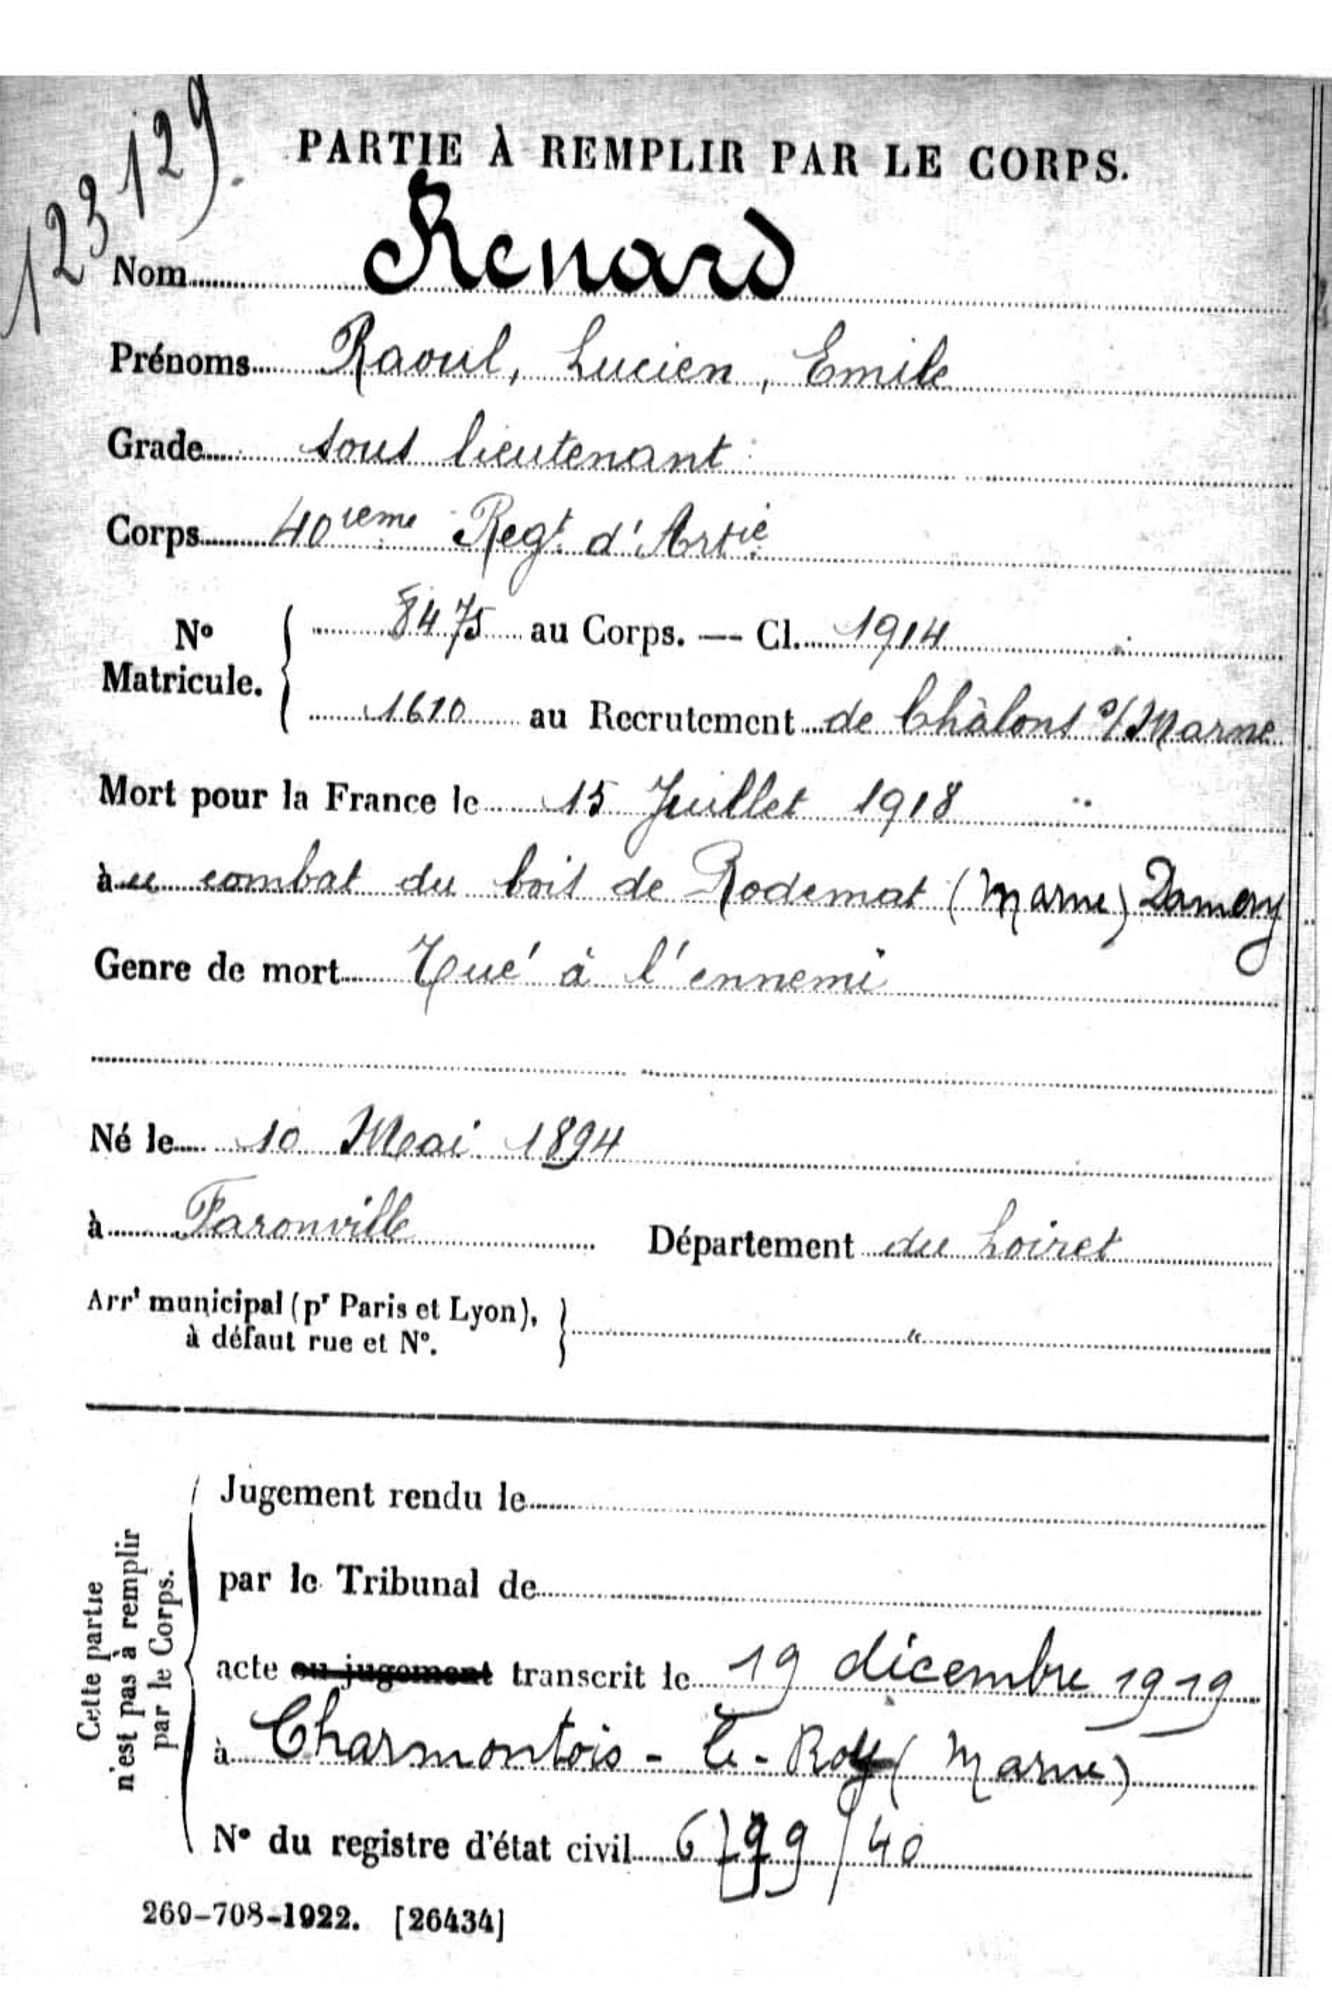 123129.
PARTIE À REMPLIR PAR LE CORPS.
Nom Renard
Prénoms Raoul, Lucien, Emile
Grade sous lieutenant
Corps 40ième Regt d'Artie
No Matricule. 8475 au Corps. — Cl. 1914
1610 au Recrutement de Châlons s/Marne
Mort pour la France le 15 Juillet 1918
à u combat du bois de Rodemat (Marne) Damery
Genre de mort Tué à l'ennemi
Né le 10 Mai 1894
à Faronville Département du Loiret
Arrt municipal (pr Paris et Lyon),
à défaut rue et No. "
Cette partie
n'est pas à remplir
par le Corps.
Jugement rendu le
par le Tribunal de
acte ou jugement transcrit le 19 décembre 1919
à Charmontois-le-Roy (Marne)
No du registre d'état civil /40
269-708-1922. [26434]